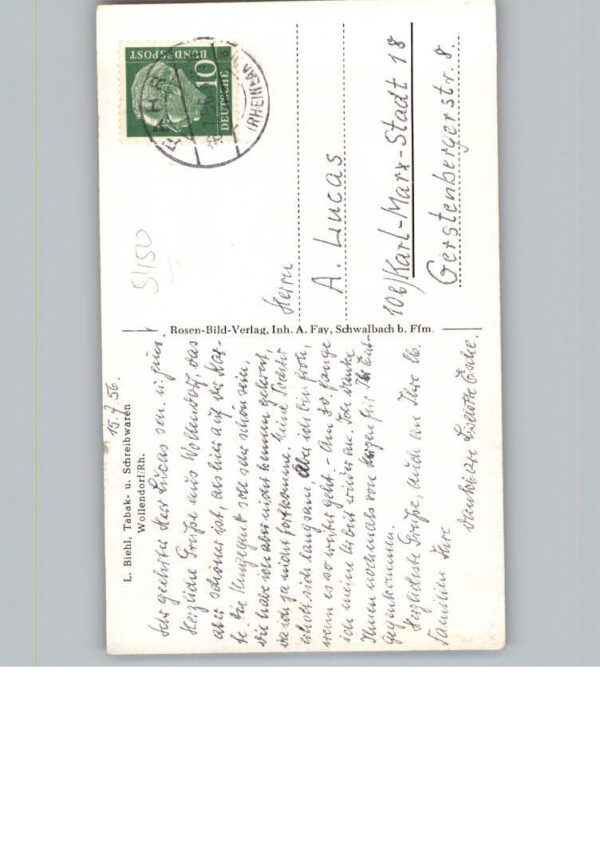 L. Biehl, Tabak- u. Schreibwaren
Wollendorf/Rh.
15.7.56.
Sehr geehrter Herr Lucas sen. u. jun.!
Herzliche Grüße aus Wollendorf, das
aber schöner ist, als hier auf der Kar-
te. Die Umgegend soll sehr schön sein,
die habe ich aber nicht kennen gelernt,
da ich ja nicht fortkomme. Meine Tochter
erholt sich langsam, aber ich bin froh,
wenn es so weiter geht. - Am 30. fange
ich meine Arbeit wieder an. Ich danke
Ihnen nochmals von Herzen für Ihr Ent-
gegenkommen.
Herzlichste Grüße, auch an Ihre lb.
Familien Ihre
dankbare Liselotte
Rosen-Bild-Verlag, Inh. A. Fay, Schwalbach b. Ffm.
51150
DEUTSCHE
BUNDESPOST
10
(RHEINLAN
Herrn
A. Lucas
10b) Karl-Marx-Stadt 18
Gerstenbergerstr. 8.